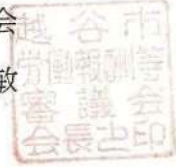 会
敏
越谷市
労働報酬等
審議会
会長之印